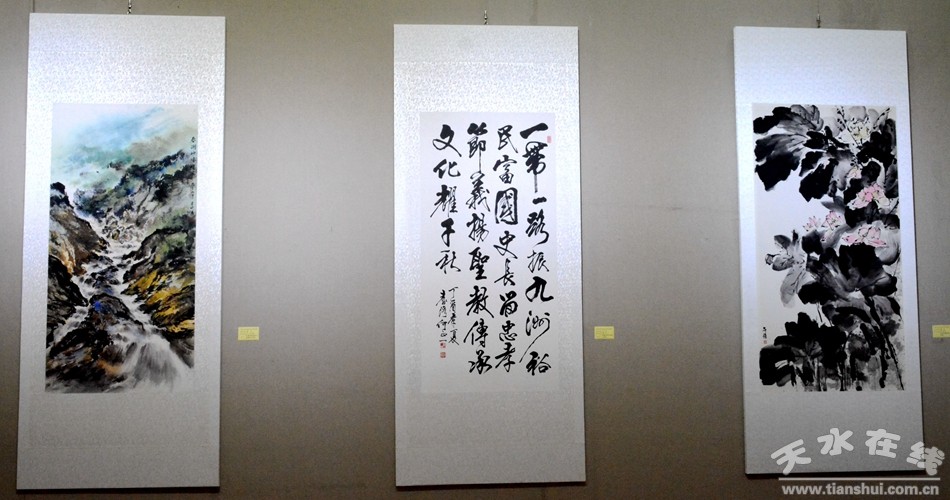 一带一路振九洲裕
民富國史長留忠孝
節義揚聖教傳承
文化耀千秋
丁酉季夏
天水在线
www.tianshui.com.cn